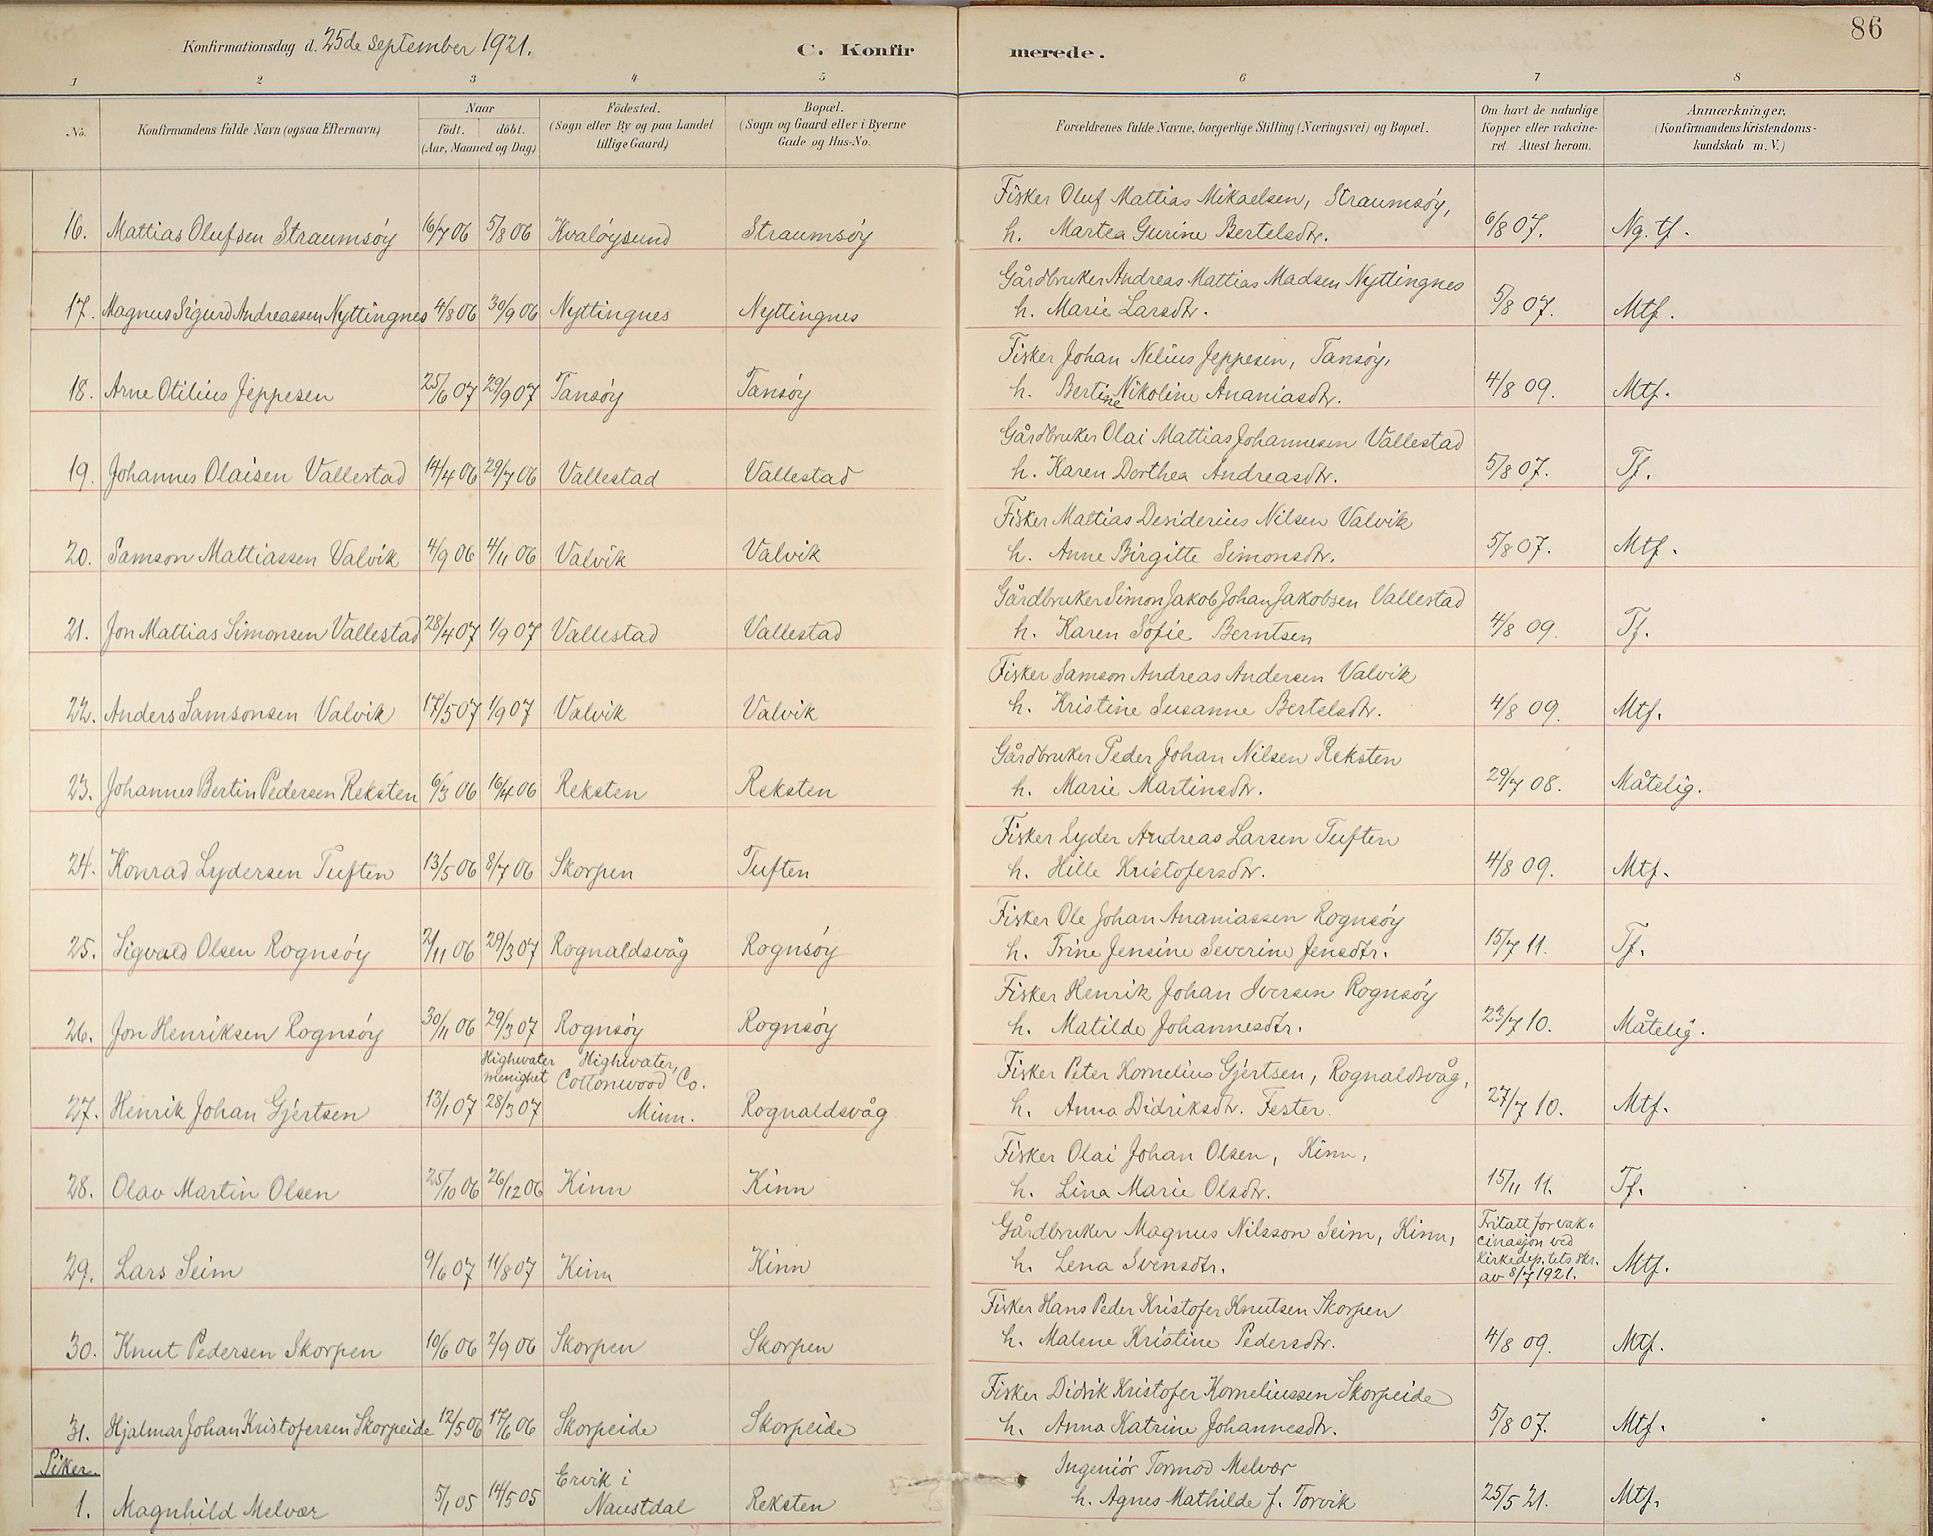 86
Konfirmationsdag d. 25de september 1921.
C. Konfirmerede.
1 2 3 4 5 6 7 8
No.
Konfirmandens fulde Navn (ogsaa Efternavn)
Naar
födt. döbt.
(Aar, Maaned og Dag)
Födested.
(Sogn eller By og paa Landet
tillige Gaard)
Bopæl.
(Sogn og Gaard eller i Byerne
Gade og Hus-No.
Forældrenes fulde Navne, borgerlige Stilling (Næringsvei) og Bopæl.
Om havt de naturlige
Kopper eller vakcine-
ret. Attest herom.
Anmærkninger,
(Konfirmandens Kristendoms-
kundskab m. V.)
Fisker Oluf Mattias Mikaelsen, Straumsöy,
16. Mattias Olufsen Straumsöy 16/7 06 5/8 06 Kvalöysund Straumsöy h. Martea Gurine Bertelsdtr. 6/8 07. Ng. tf.
Gårdbruker Andreas Mattias Madsen Nyttingnes
17. Magnus Sigurd Andreassen Nyttingnes 4/8 06 30/9 06 Nyttingnes Nyttingnes h. Marie Larsdtr. 5/8 07. Mtf.
Fisker Johan Nelius Jeppesen, Tansöy,
18. Arne Otilius Jeppesen 25/6 07 29/9 07 Tansöy Tansöy h. Bertine Nikoline Ananiasdtr. 4/8 09. Mtf.
Gårdbruker Olai Mattias Johannesen Vallestad
19. Johannes Olaisen Vallestad 14/4 06 29/7 06 Vallestad Vallestad h. Karen Dorthea Andreasdtr. 5/8 07. Tf.
Fisker Mattias Desiderius Nilsen Valvik
20. Samson Mattiassen Valvik 4/9 06 4/11 06 Valvik Valvik h. Anne Birgitte Simonsdtr. 5/8 07. Mtf.
Gårdbruker Simon Jakob Johan Jakobsen Vallestad
21. Jon Mattias Simonsen Vallestad 28/4 07 1/9 07 Vallestad Vallestad h. Karen Sofie Berntsen 4/8 09. Tf.
Fisker Samson Andreas Andersen Valvik
22. Anders Samsonsen Valvik 17/5 07 1/9 07 Valvik Valvik h. Kristine Susanne Bertelsdtr. 4/8 09. Mtf.
Gårdbruker Peder Johan Nilsen Reksten
23. Johannes Bertin Pedersen Reksten 6/3 06 16/4 06 Reksten Reksten h. Marie Martinsdtr. 29/7 08. Måtelig.
Fisker Lyder Andreas Larsen Tuften
24. Konrad Lydersen Tuften 13/5 06 8/7 06 Skorpen Tuften h. Hille Kristofersdtr. 4/8 09. Mtf.
Fisker Ole Johan Ananiassen Rognsöy
25. Sigvald Olsen Rognsöy 2/11 06 29/3 07 Rognaldsvåg Rognsöy h. Trine Jensine Severine Jensdtr. 15/7 11. Tf.
Fisker Henrik Johan Iversen Rognsöy
26. Jon Henriksen Rognsöy 30/11 06 29/3 07 Rognsöy Rognsöy h. Matilde Johannesdtr. 23/7 10. Måtelig.
Highwater Highwater, Fisker Peter Kornelius Gjertsen, Rognaldsvåg,
menighet Cottonwood Co.
27. Henrik Johan Gjertsen 13/1 07 28/3 07 Minn. Rognaldsvåg h. Anna Didriksdtr. Fester. 27/7 10. Mtf.
Fisker Olai Johan Olsen, Kinn,
28. Olav Martin Olsen 25/10 06 26/12 06 Kinn Kinn h. Lina Marie Olsdtr. 15/11 11. Tf.
Gårdbruker Magnus Nilsson Seim, Kinn, Fritatt for vak-
cinasjon ved
29. Lars Seim 9/6 07 11/8 07 Kinn Kinn h. Lena Svensdtr. Kirkedep.tets skr. Mtf.
av 8/7 1921.
Fisker Hans Peder Kristofer Knutsen Skorpen
30. Knut Pedersen Skorpen 10/6 06 2/9 06 Skorpen Skorpen h. Malene Kristine Pedersdtr. 4/8 09. Mtf.
Fisker Didrik Kristofer Korneliussen Skorpeide
31. Hjalmar Johan Kristofersen Skorpeide 12/5 06 17/6 06 Skorpeide Skorpeide h. Anna Katrine Johannesdtr. 5/8 07. Mtf.
Piker.
Ervik i Ingeniör Tormod Melvær
1. Magnhild Melvær 5/1 05 14/5 05 Naustdal Reksten h. Agnes Mathilde f. Torvik 25/5 21. Mtf.